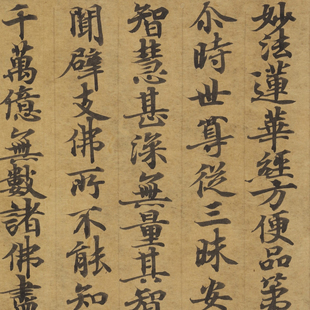 妙法蓮華經方便品第
尒時世尊從三昧安
智慧甚深無量其智
聞辟支佛所不能知
千萬億無數諸佛盡